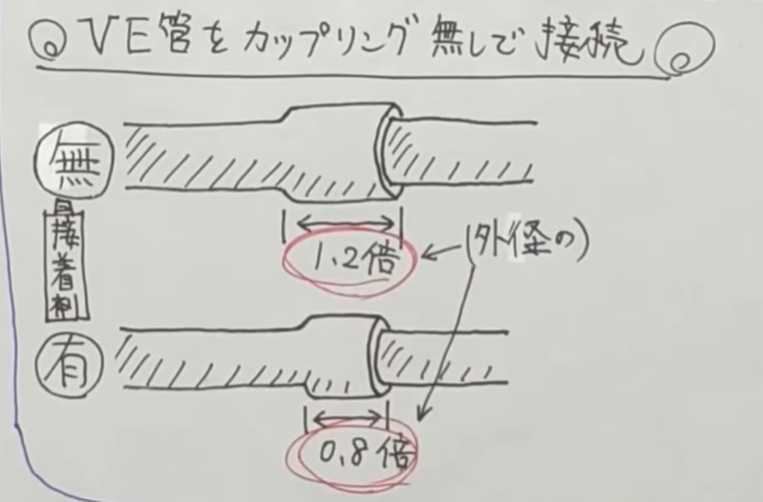 VE管をカップリング無しで接続
無
接着剤
1.2倍
(外径の)
有
0.8倍